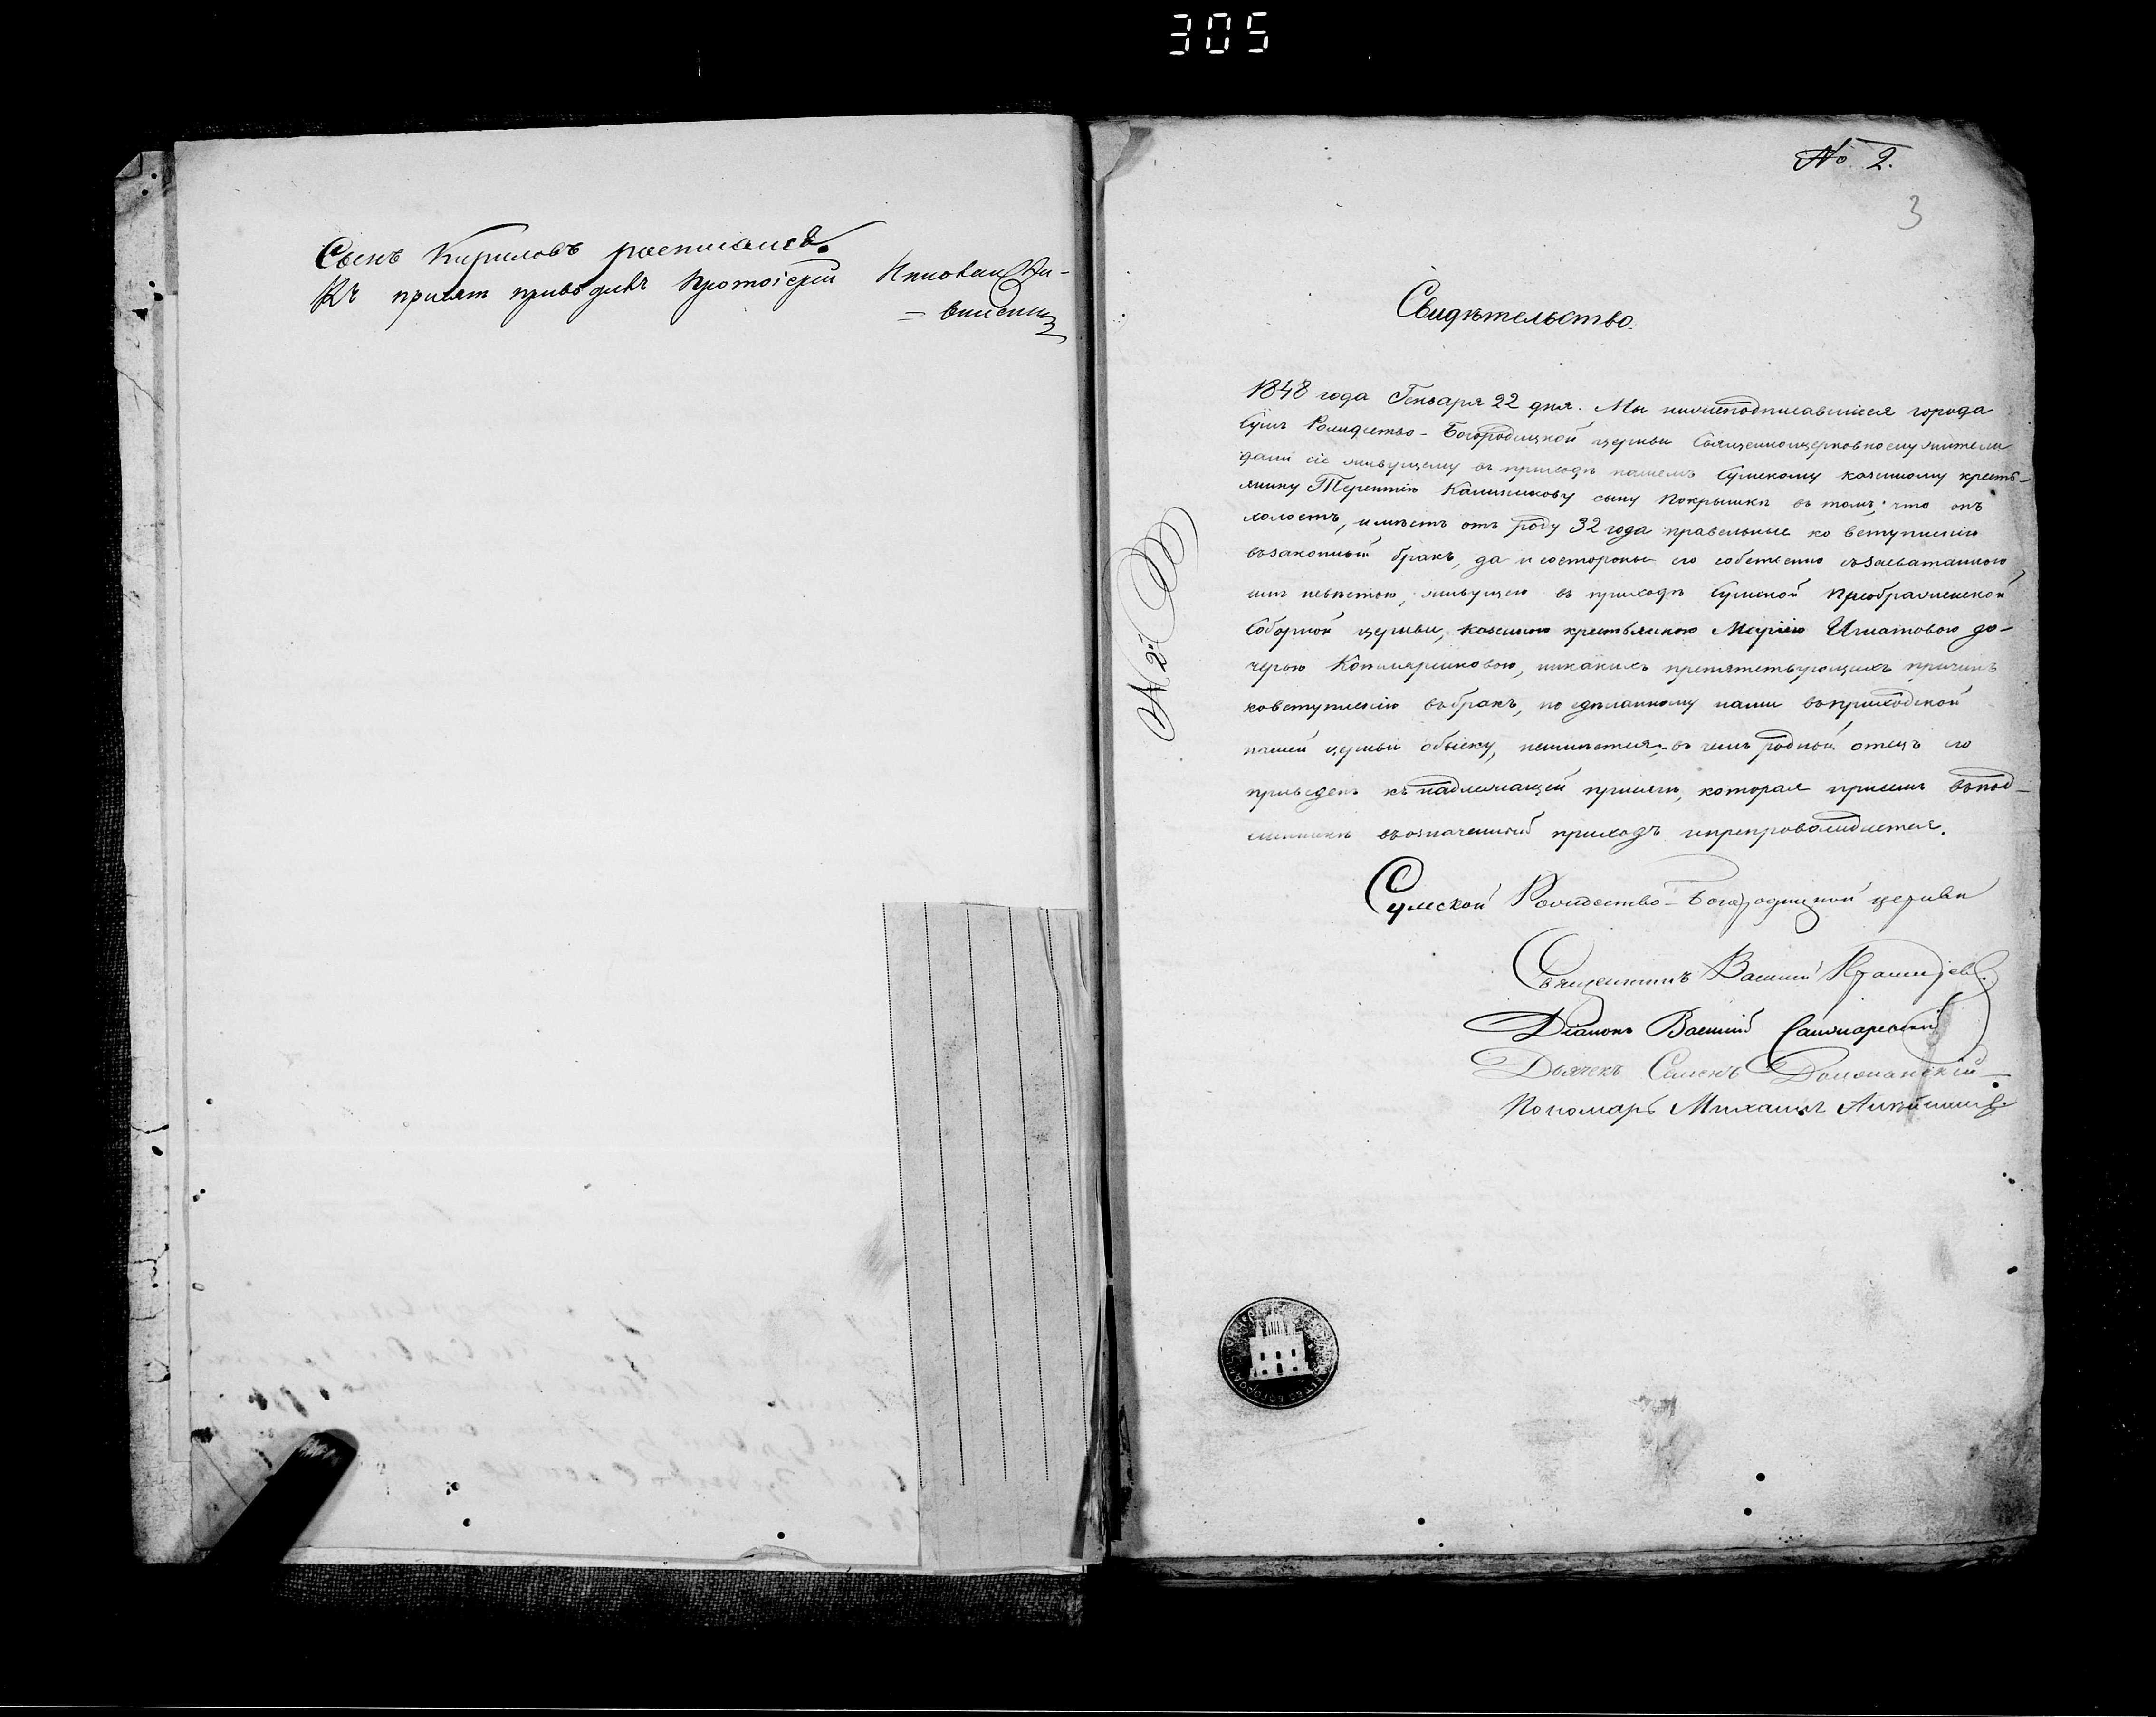 305
Сынъ Кириловъ росписался.
Къ присягѣ приводилъ Протоіерей
№ 2.
3
№ 2й
Свидѣтельство.
1848 года Генваря 22 дня. Мы нижеподписавшіеся города
Сумъ Рождество-Богородицкой церкви Священноцерковнослужители
дали сіе живущему въ приходѣ нашемъ Сумскому казенному кресть-
янину Терентію Калиникову сыну Покрышкѣ въ томъ: что онъ
холостъ, имѣетъ отъ роду 32 года правельные ко вступленію
въ законный бракъ, да и состороны его собственно съ засватанною
имъ невѣстою, живущею въ приходѣ Сумской Преображенской
Соборной церкви, казенною крестьянкою Маріею Игнатовою до-
черью Котляриковою, никакихъ препятствующихъ причинъ
ковступленію въ бракъ, по сдѣланному нами въ приходской
нашей церкви обыску, неимѣется; въ чемъ родной отецъ его
приведенъ къ надлежащей присягѣ, которая присемъ въ под-
линникѣ въ означенный приходъ и препровождается.
Сумской Рождество-Богородицкой церкви
Священникъ Василій
Діаконъ Василій
Дьячекъ Семенъ Доложанскій
Пономарь Михаилъ